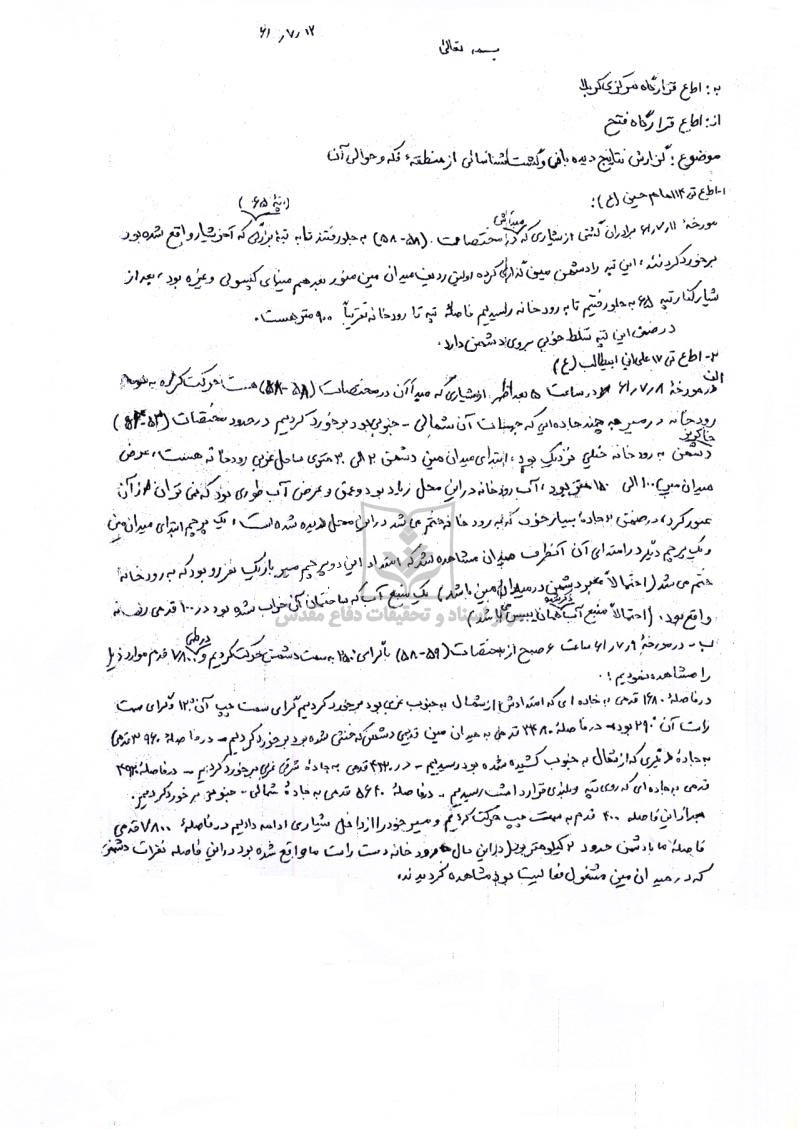 ۶۱٫۷٫۱۲
بسمه تعالی
به: اطلاع قرارگاه مرکزی کربلا
از: اطلاع قرارگاه فتح
موضوع: گزارش نتایج دیده بانی و گشت شناسائی از منطقهٔ فکه و حوالی آن
۱- اطلاع تی ۱۴ امام حسین (ع):
(تپهٔ ۶۵)
مورخهٔ ۶۱٫۷٫۱۱ برادران گشتی از شیاری که مبدأش در مختصات (۵۸-۵۸) به جلو رفتند تا به تپهٔ بزرگی که آخر شیار واقع شده بود
برخورد کردند، این تپه را دشمن مین گذاری کرده اولین ردیف میدان مین منور بعد هم مینهای کپسولی و غیره بود، بعد از
شیار کنار تپه ۶۵ به جلو رفتیم تا به رودخانه رسیدیم فاصلهٔ تپه تا رودخانه تقریباً ۹۰۰ متر هست.
در ضمن این تپه تسلط خوبی بروی دشمن دارد.
۲- اطلاع تی ۱۷ علی ابن ابیطالب (ع)
الف در مورخهٔ ۶۱٫۷٫۸ در ساعت ۵ بعدازظهر از شیاری که مبدأ آن در مختصات (۵۸-۵۸) هست حرکت کرده به
رودخانه در مسیر به چند جاده ای که جهات آن شمالی - جنوبی بود برخورد کردیم در حدود مختصات
دشمن خاکریز به رودخانه خیلی نزدیک بود، ابتدای میدان مین دشمن ۲۰ الی ۳۰ متری ساحل غربی رودخانه هست، عرض
میدان مین ۱۰۰ الی ۱۵۰ متر بود، آب رودخانه در این محل زیاد بود و عمق و عرض آب طوری بود که نمی توان از آن
عبور کرد، در ضمن جادهٔ بسیار خوب که به رودخانه ختم می شد در این محل دیده شده است، یک پرچم ابتدای میدان مین
و یک پرچم دیگر در امتدای آن آنطرف میدان مشاهده شد که امتداد این دو پرچم مسیر باریک نفررو بود که به رودخانه
ختم می شد (احتمالاً معبر دشمن در میدان مین باشد) یک منبع آب که ساختمان آن خراب شده بود در ۱۰۰ قدمی رودخانه
واقع بود. (احتمالاً منبع آب باشد)
ب- در مورخهٔ ۶۱٫۷٫۹ ساعت ۶ صبح از مختصات (۵۹-۵۸) با گرای ۲۵۰ به سمت دشمن حرکت کردیم و در طی ۷۸۰۰ قدم موارد ذیل
را مشاهده نمودیم:
در فاصلهٔ ۱۶۸۰ قدمی به جاده ای که امتدادش از شمال به جنوب غربی بود برخورد کردیم گرای سمت چپ آن ۱۲۰ و گرای سمت
راست آن ۲۹۰ بود - در فاصلهٔ ۳۴۸۰ قدمی به میدان مین قدیمی دشمن که خنثی شده بود برخورد کردیم - در فاصلهٔ ۳۹۶۰ قدمی
به جادهٔ دیگری که از شمال به جنوب کشیده شده بود رسیدیم - در ۴۳۲۰ قدمی به جادهٔ شرقی غربی برخورد کردیم - در فاصلهٔ ۴۹۲۰
قدمی به جاده ای که روی تپه و بلندی قرار داشت رسیدیم - در فاصلهٔ ۵۶۴۰ قدمی به جادهٔ شمالی - جنوبی برخورد کردیم.
بعد از این فاصله ۴۰۰ قدم به سمت چپ حرکت کردیم و مسیر خود را از داخل شیاری ادامه دادیم در فاصلهٔ ۷۸۰۰ قدمی
فاصلهٔ ما با دشمن حدود ۲ کیلومتر بود (در این حال رودخانه دست راست ما واقع شده بود) در این فاصله نفرات دشمن
که در میدان مین مشغول فعالیت بود مشاهده کردیم.